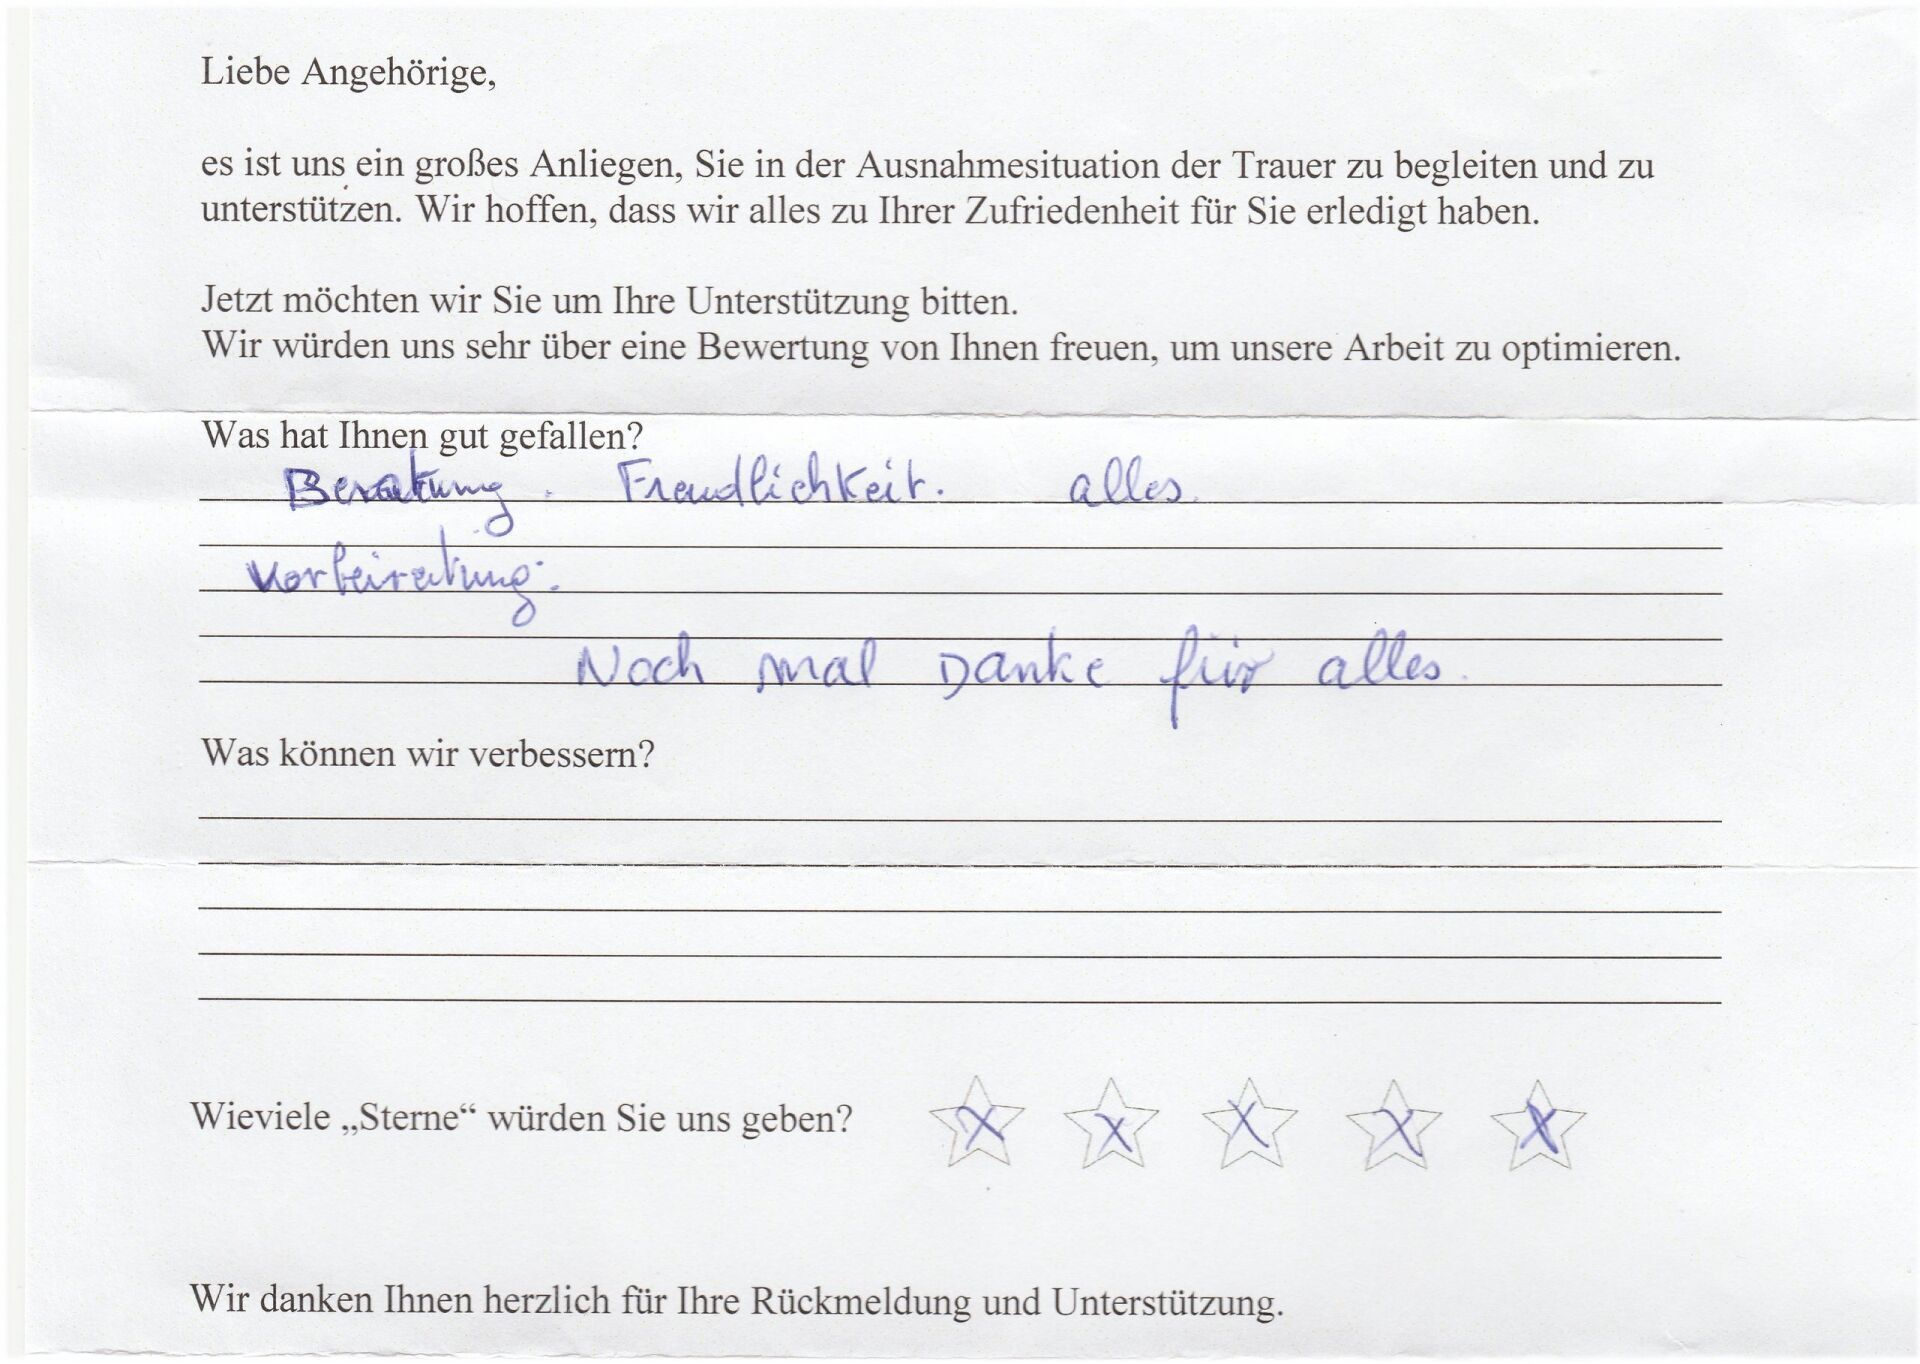 Liebe Angehörige,
es ist uns ein großes Anliegen, Sie in der Ausnahmesituation der Trauer zu begleiten und zu
unterstützen. Wir hoffen, dass wir alles zu Ihrer Zufriedenheit für Sie erledigt haben.
Jetzt möchten wir Sie um Ihre Unterstützung bitten.
Wir würden uns sehr über eine Bewertung von Ihnen freuen, um unsere Arbeit zu optimieren.
Was hat Ihnen gut gefallen?
Beratung. Freudlichkeit. alles.
Vorbeireitung.
Noch mal Danke für alles.
Was können wir verbessern?
Wieviele „Sterne“ würden Sie uns geben? X X X X X
Wir danken Ihnen herzlich für Ihre Rückmeldung und Unterstützung.